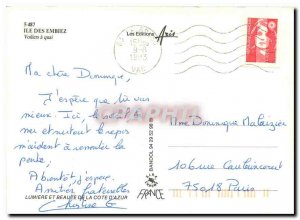 S-487
ILE DES EMBIEZ
Voiliers à quai
Les Editions Aris
Ma chère Dominique,
J'espère que tu vas
mieux. Ici, le soleil, la
mer et surtout le repos
m'aident à remonter la
pente.
A bientôt, j'espère.
Amitiés
Christine
LUMIERE ET BEAUTE DE LA COTE D'AZUR
BANDOL
FRANCE
Mme Dominique
106 rue Caulaincourt
75018 Paris